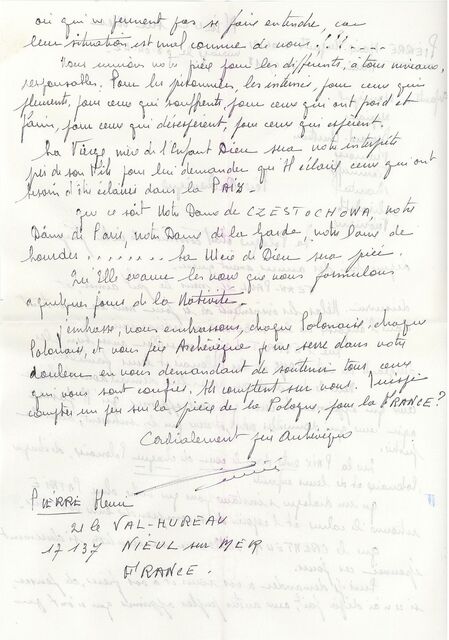 ou qui ne peuvent pas se faire entendre, car
leur situation est mal connue de nous !!!!.....
Nous unirons notre prière pour les différents, à tous niveaux,
responsables. Pour les prisonniers, les internés, pour ceux qui
pleurent, pour ceux qui souffrent, pour ceux qui ont froid et
faim, pour ceux qui désespèrent, pour ceux qui espèrent.
La Vierge mère de l'Enfant Dieu sera notre interprète
près de son Fils pour lui demander qu'Il éclaire ceux qui ont
besoin d'être éclairés dans la PAIX -
que ce soit Notre Dame de CZESTOCHOWA, notre
Dame de Paris, notre Dame de la Garde, notre Dame de
Lourdes ........ La Mère de Dieu sera priée.
Qu'Elle exauce les voeux que nous formulons
à quelques jours de la Nativité -
J'embrasse, nous embrassons, chaque Polonaise, chaque
Polonais, et vous père Archevêque, je me serre dans votre
douleur en vous demandant de soutenir tous ceux
qui vous sont confiés. Ils comptent sur vous. Puissje
compter un peu sur la prière de la Pologne, pour la FRANCE ?
Cordialement père Archevêque
PIERRE Henri
21 le VAL-HUREAU
17137 NIEUL sur MER
FRANCE.